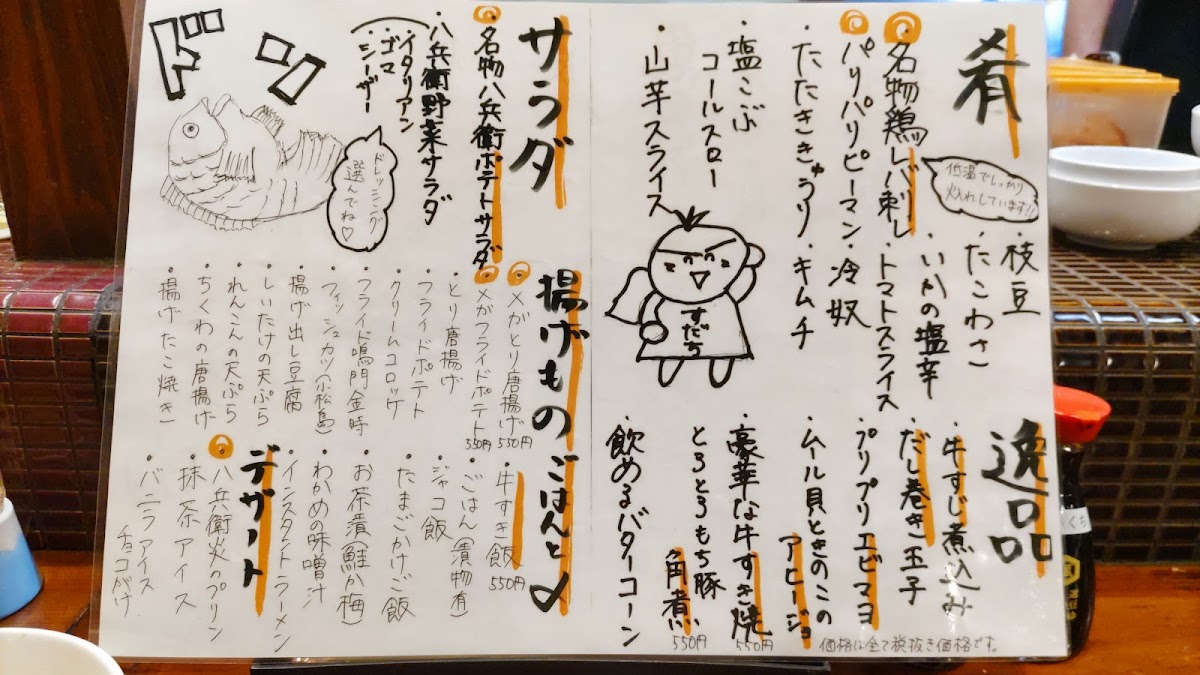 肴
・名物鶏レバ刺し
低温でしっかり
火入れしています!!
・パリパリピーマン
・たたききゅうり
・塩こぶ
コールスロー
・山芋スライス
・枝豆
・たこわさ
・いかの塩辛
・トマトスライス
・冷奴
・キムチ
すだち
逸品
・牛すじ煮込み
・だし巻き玉子
・プリプリエビマヨ
・ムール貝ときのこの
アヒージョ
・豪華な牛すき焼
550円
・とろとろもち豚
角煮
550円
・飲めるバターコーン
価格は全て税抜き価格です。
サラダ
・名物八兵衛ポテトサラダ
・八兵衛野菜サラダ
・イタリアン
・ゴマ
・シーザー
ドレッシング
選んでね♡
ドン
揚げもの
・メガとり唐揚げ
550円
・メガフライドポテト
550円
・とり唐揚げ
・フライドポテト
・クリームコロッケ
・フライド鳴門金時
・フィッシュカツ(小松島)
・揚げ出し豆腐
・しいたけの天ぷら
・れんこんの天ぷら
・ちくわの唐揚げ
・揚げたこ焼き
ごはんと〆
・牛すき飯
550円
・ごはん(漬物有)
・ジャコ飯
・たまごかけご飯
・お茶漬(鮭か梅)
・わかめの味噌汁
・インスタントラーメン
デザート
・八兵衛火のプリン
・抹茶アイス
・バニラアイス
チョコがけ